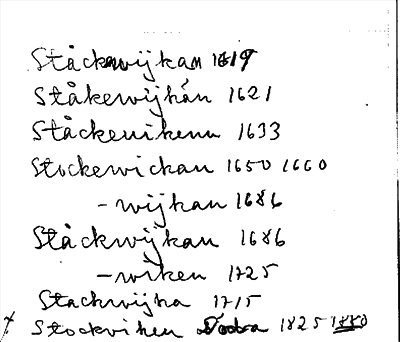 Ståckwijkan 1619
Ståkewijkån 1621
Ståckevikenn 1633
Stockewickan 1650 1660
- wijkan 1686
Ståckwijkan 1686
- wiken 1725
Stackwijka 1715
Stockviken Södra 1825 1880